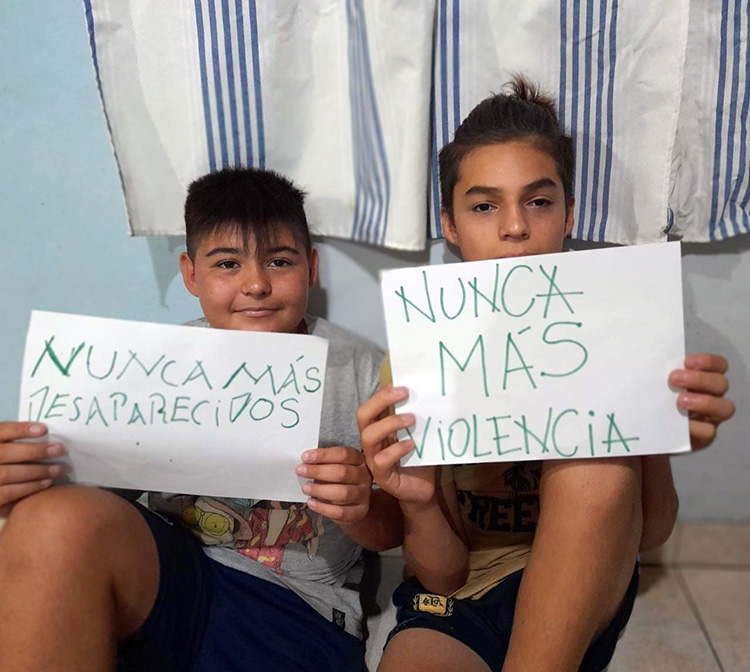 NUNCA MÁS
DESAPARECIDOS
NUNCA
MÁS
VIOLENCIA